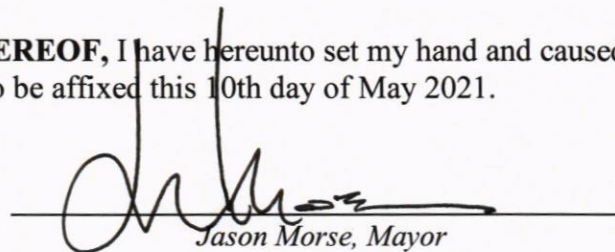 EREOF, I have hereunto set my hand and caused
o be affixed this 10th day of May 2021.
Jason Morse, Mayor